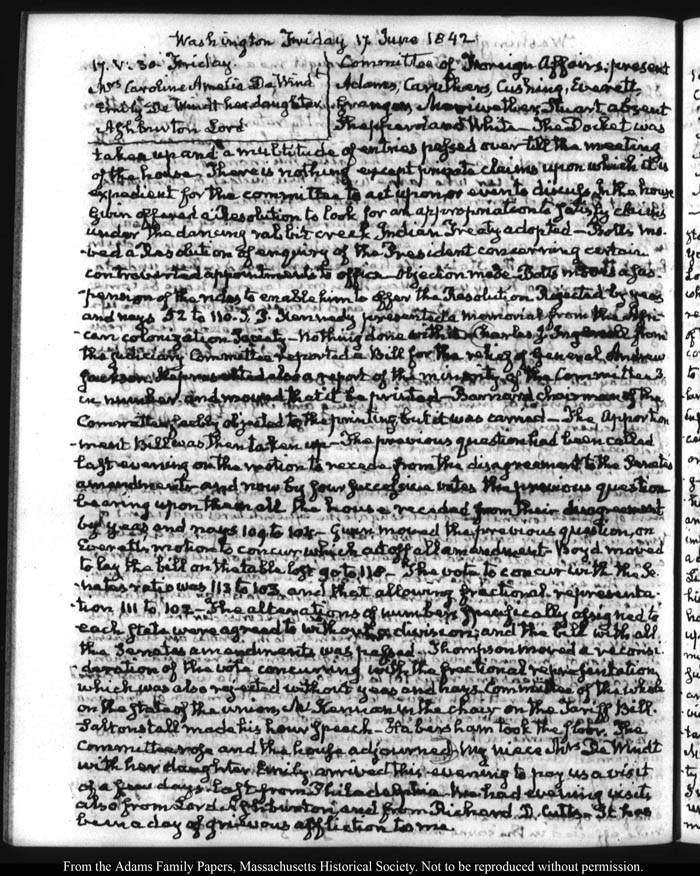 Washington Friday 17 June 1842
17. V. 30. Friday.
Mrs Caroline Amelia De Windt
Emily De Windt her daughter
Ashburton Lord
Committee of Foreign Affairs; present
Adams, Caruthers, Cushing, Everett
Granger, Meriwether, Stuart absent
Shepperd and White— The Docket was
taken up and a multitude of entries passed over till the meeting
of the house. There is nothing except private claims upon which it is
expedient for the committee to act upon or even to discuss. In the house
Gwin offered a Resolution to look for an appropriation to satisfy claims
under the dancing rabbit creek Indian Treaty adopted— Botts mo-
-ved a Resolution of enquiry of the President concerning certain
controverted appointments to office— Objection made. Botts moved a sus
-pension of the rules to enable him to offer the Resolution Rejected by yeas
and nays 52 to 110. J. P. Kennedy presented a memorial from the Afri-
-can colonization Society— Nothing done with it. Charles J. Ingersoll from
the Judiciary Committee reported a Bill for the relief of General Andrew
Jackson. He presented also a report of the minority of the Committee 3
in number and moved that it be printed— Barnard chairman of the
Committee, faebly objected to the printing but it was carried— The Apportion
-ment Bill was then taken up— The previous question had been called
last evening on the motion to recede from the disagreement to the Senate's
amendments and now by four successive votes the previous question
bearing upon them all the house receded from their disagreement
by yeas and nays 109 to 102— Gwin moved the previous question, on
Everett's motion to concur, which cut off all amendment— Boyd moved
to lay the bill on the table lost 90 to 118— The vote to concur with the Se-
-nates ratio was 113 to 103, and that allowing fractional representa-
-tion 111 to 102— The alterations of numbers specifically assigned to
each State were agreed to without a division; and the bill with all
the Senates amendments was passed. Thompson moved a reconsi-
-deration of the vote concurring with the fractional representation,
which was also rejected without yeas and nays. Committee of the whole
on the state of the union, McKennan in the chair on the Tariff Bill.
Saltonstall made his hour speech— Habersham took the floor. The
Committee rose and the house adjourned. My niece Mrs De Windt
with her daughter Emily, arrived this evening to pay us a visit
of a few days. Last from Philadelphia. We had evening visits
also from Lord Ashburton and from Richard D. Cutts. It has
been a day of grievous affliction to me.
From the Adams Family Papers, Massachusetts Historical Society. Not to be reproduced without permission.